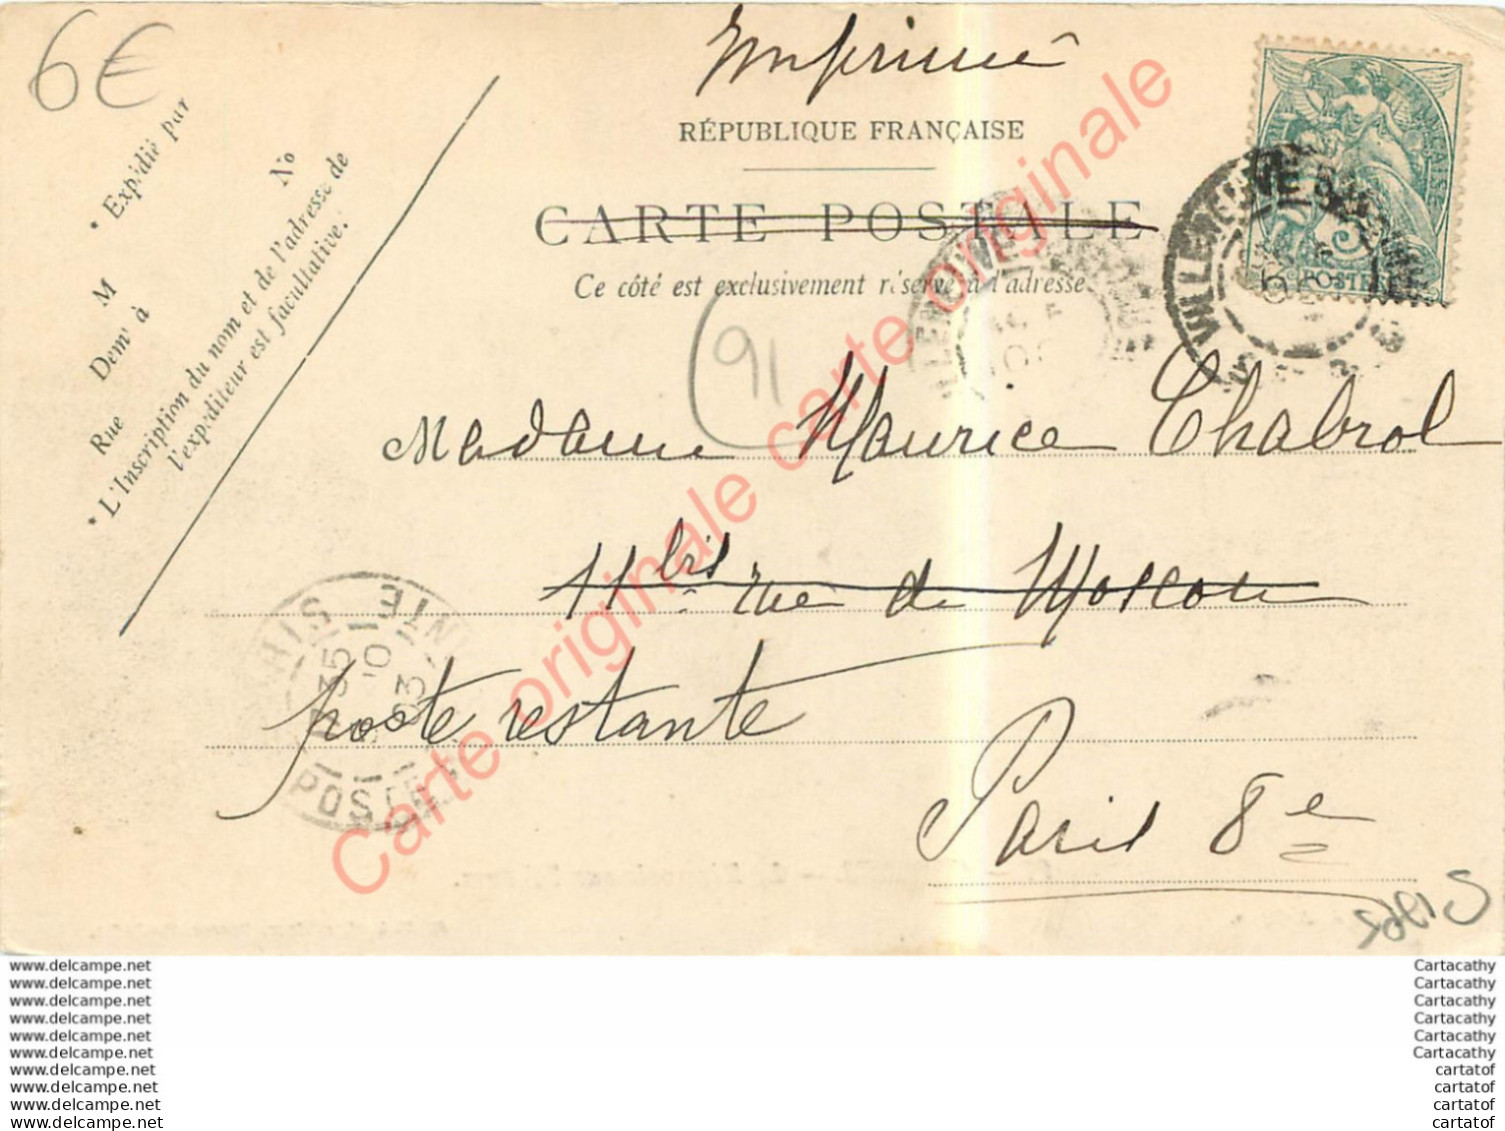 6€
Imprimé
RÉPUBLIQUE FRANÇAISE
CARTE POSTALE
Ce côté est exclusivement réservé à l'adresse
* Expédié par
M
Dem' à
No
Rue
* L'Inscription du nom et de l'adresse de
l'expéditeur est facultative.
FRANÇAISE
5c POSTES
91
Madame Maurice Chabrol
11 bis rue de Moscou
poste restante
Paris 8e
PARIS
POSTE RESTANTE
Carte originale carte originale
www.delcampe.net
www.delcampe.net
www.delcampe.net
www.delcampe.net
www.delcampe.net
www.delcampe.net
www.delcampe.net
www.delcampe.net
www.delcampe.net
www.delcampe.net
Cartacathy
Cartacathy
Cartacathy
Cartacathy
Cartacathy
Cartacathy
cartatof
cartatof
cartatof
cartatof